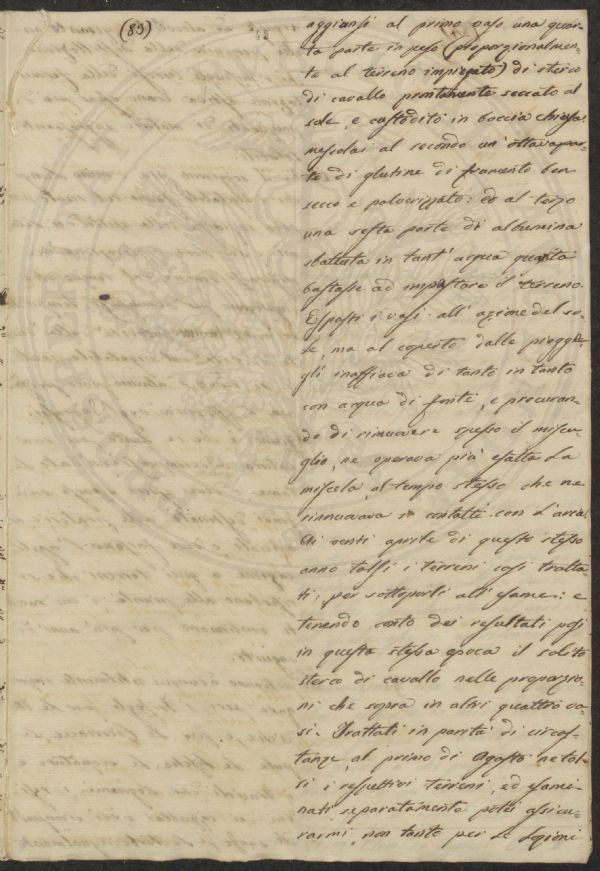 (83)
aggiunsi al primo vaso una quar-
ta parte in peso (proporzionalmen-
te al terreno impiegato) di sterco
di cavallo prontamente seccato al
sole, e custodito in boccia chiusa:
mescolai al secondo un'ottava par-
te di glutine di frumento ben
secco e polverizzato: ed al terzo
una sesta parte di albumina
sbattuta in tant'acqua quanta
bastasse ad impastare il terreno.
Esposti i vasi all'azione del so-
le, ma al coperto dalle piogge
gli inaffiava di tanto in tanto
con acqua di fonte, e procuran-
do di rimuovere spesso il miscu-
glio, ne operava più esatta la
miscela, al tempo stesso che ne
rinnuovava i contatti con l'aria.
Ai venti aprile di questo stesso
anno tolsi i terreni così tratta-
ti, per sottoporli all'esame: e
tenendo conto dei resultati posi
in questa stessa epoca il solito
sterco di cavallo nelle proporzio-
ni che sopra in altri quattro va-
si. Trattati in parità di circos-
tanze, al primo di Agosto ne tol-
si i respettivi terreni, ed esami-
nati separatamente potei assicu-
rarmi, non tanto per le